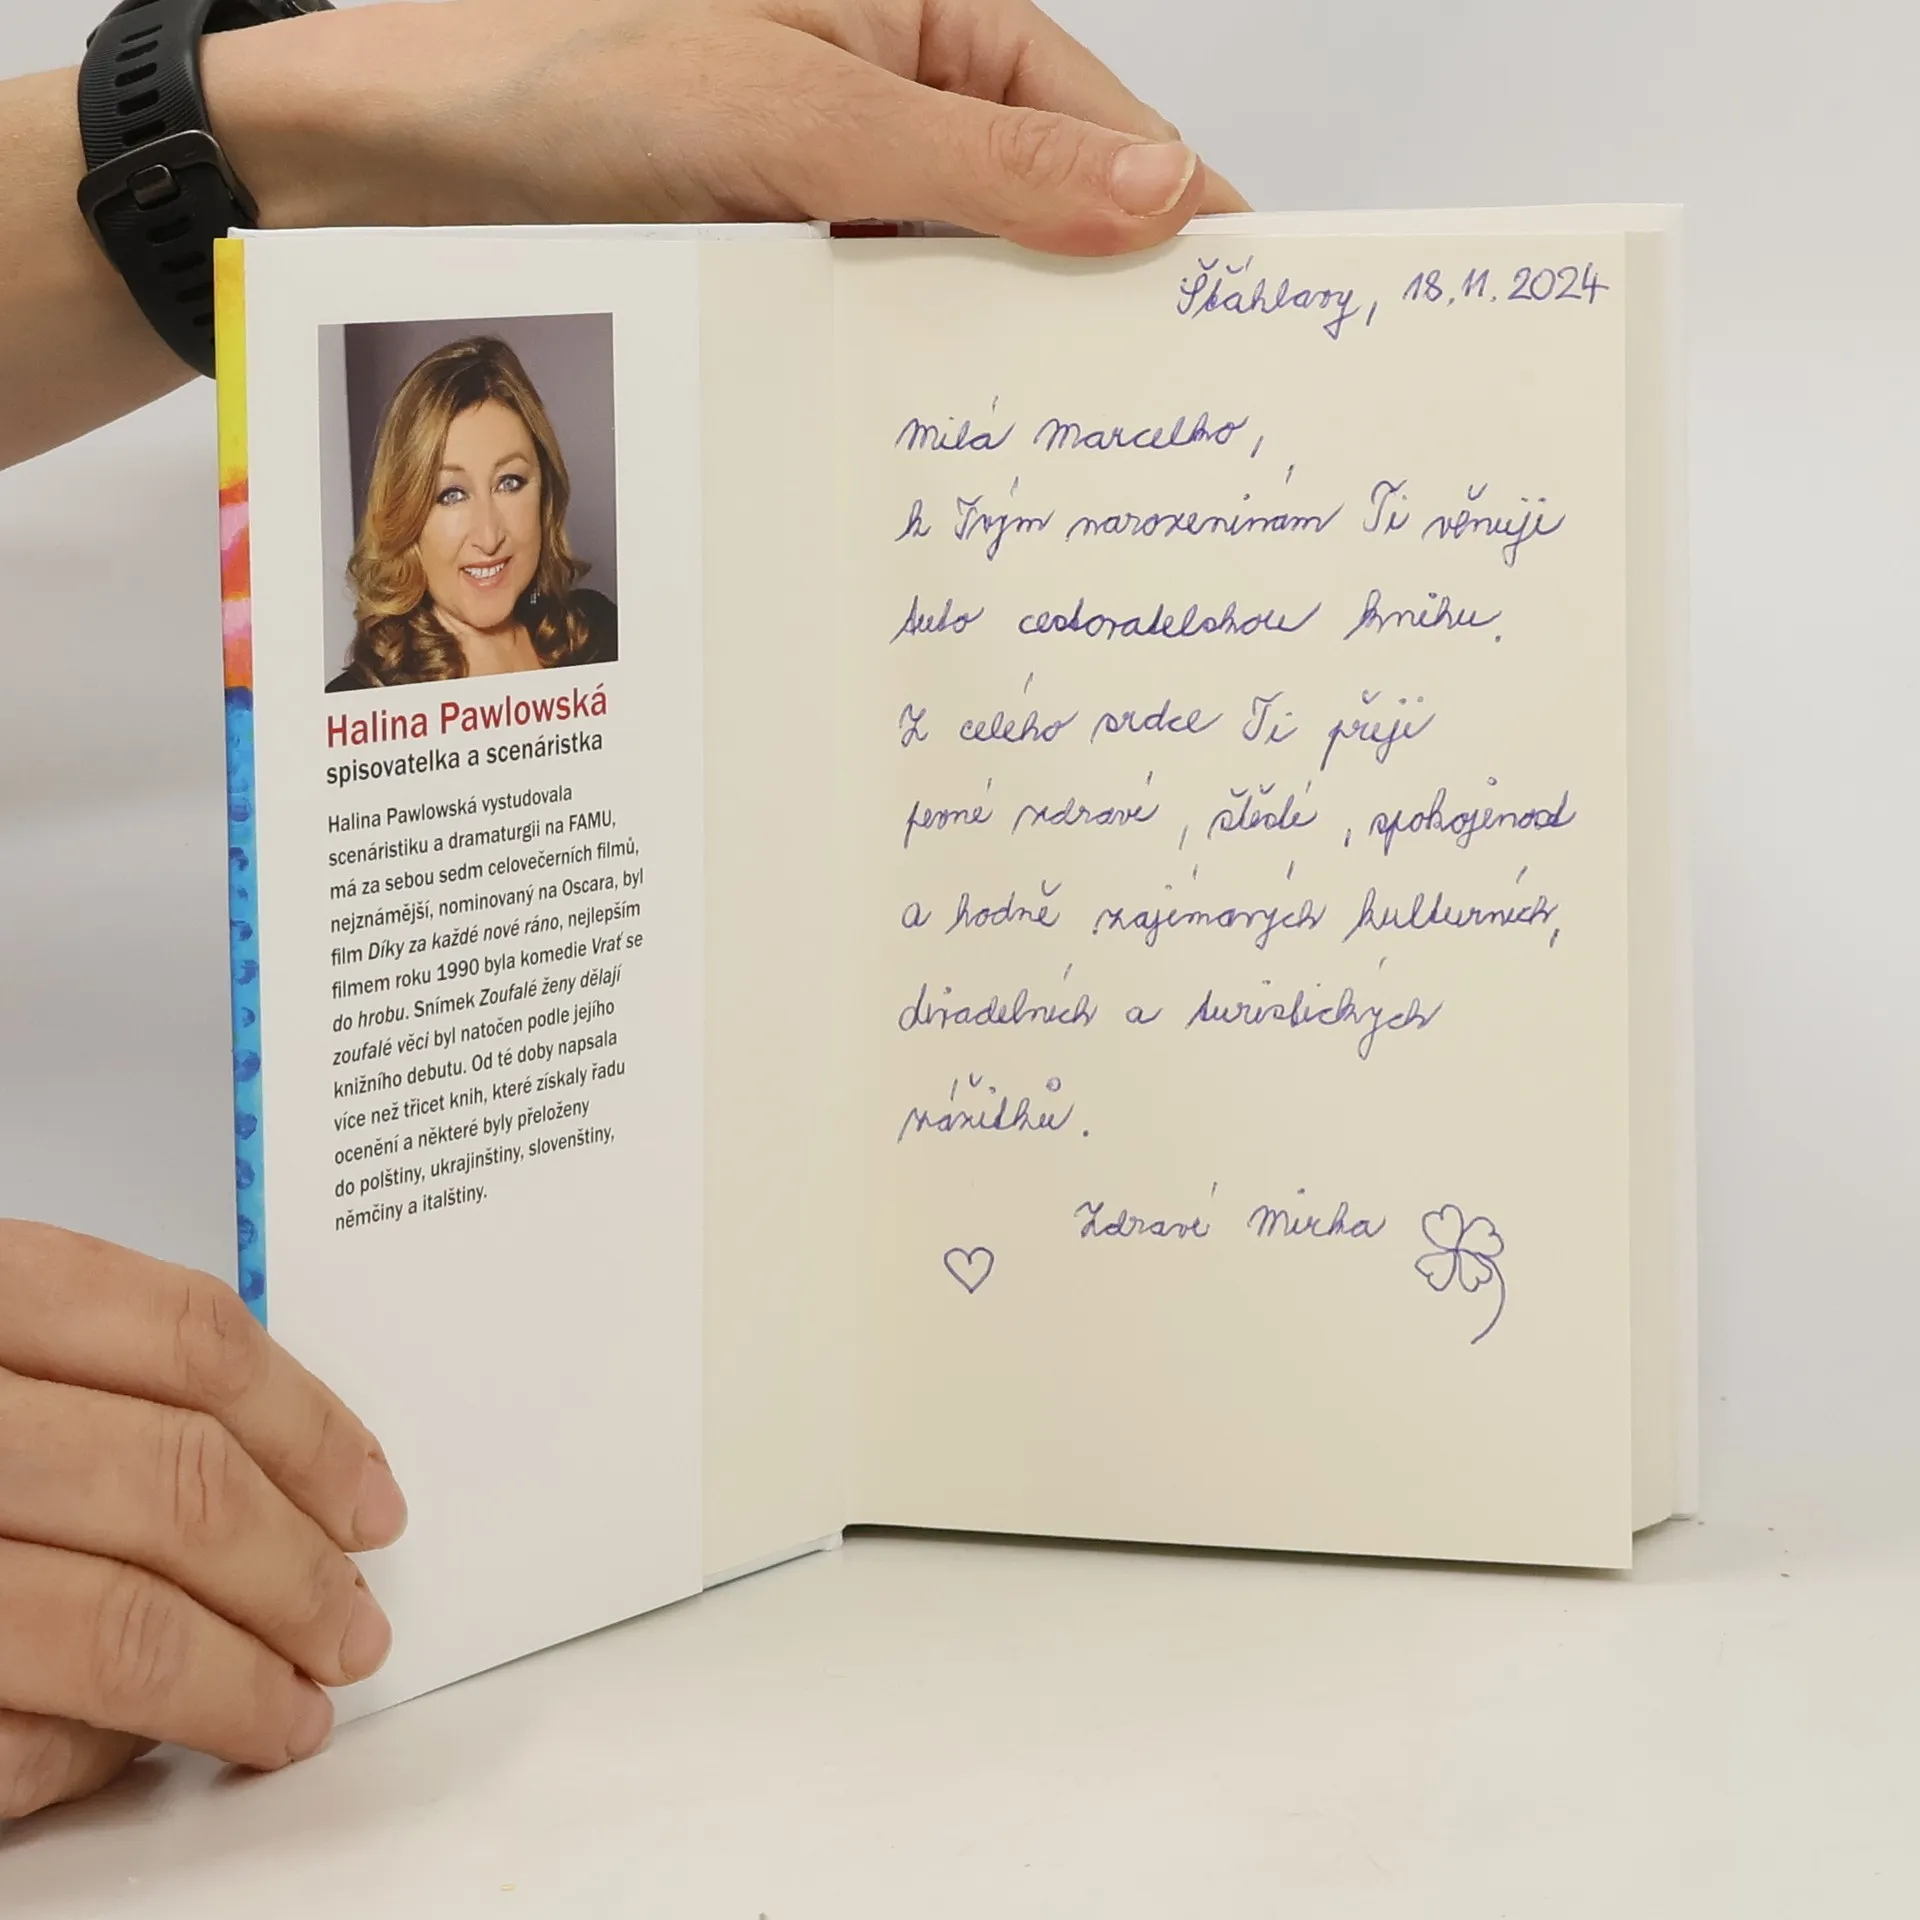 Halina Pawlowská
spisovatelka a scenáristka
Halina Pawlowská vystudovala
scenáristiku a dramaturgii na FAMU,
má za sebou sedm celovečerních filmů,
nejznámější, nominovaný na Oscara, byl
film Díky za každé nové ráno, nejlepším
filmem roku 1990 byla komedie Vrať se
do hrobu. Snímek Zoufalé ženy dělají
zoufalé věci byl natočen podle jejího
knižního debutu. Od té doby napsala
více než třicet knih, které získaly řadu
ocenění a některé byly přeloženy
do polštiny, ukrajinštiny, slovenštiny,
němčiny a italštiny.
Štáhlavy, 18.11.2024
Milá Marcelko,
k Tvým narozeninám Ti věnuji
tuto cestovatelskou knihu.
Z celého srdce Ti přeji
pevné zdraví, štěstí, spokojenost
a hodně zajímavých kulturních,
divadelních a turistických
zážitků.
Zdraví Mirka